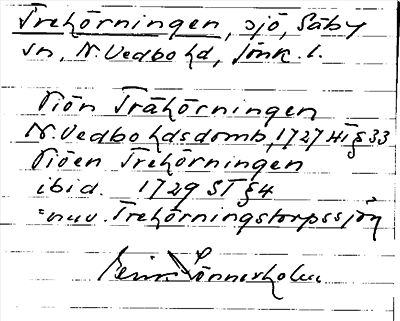 Trehörningen, sjö, Säby
sn, N. Vedbo hd, Jönk. l.
Siön Trähörningen
N. Vedbo hdsdomb, 1727 HT § 33
Siöen Trehörningen
ibid. 1729 ST § 4
= nuv. Trehörningstorpssjön